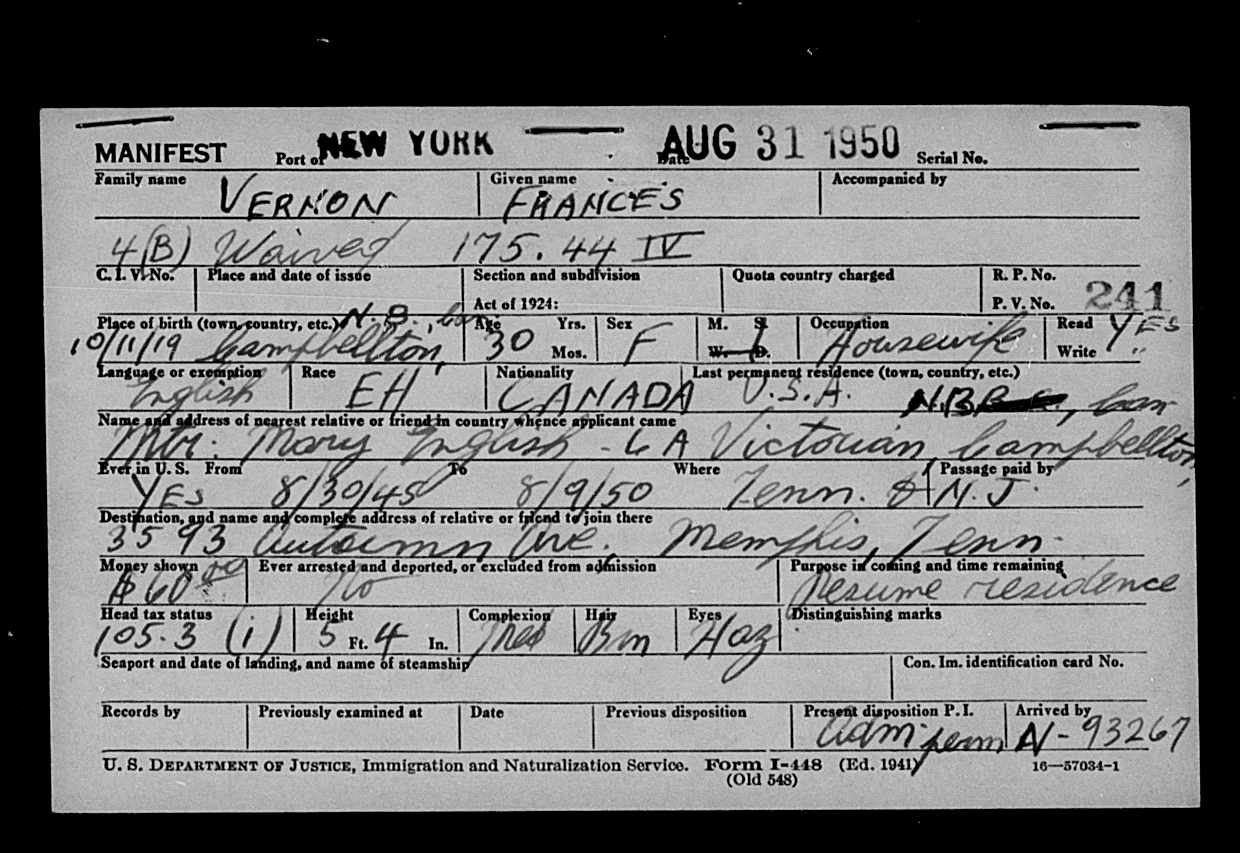 MANIFEST Port of NEW YORK Date AUG 31 1950 Serial No.
Family name Given name Accompanied by
VERNON FRANCES
4(B) Waived 175.44 IV
C. I. V. No. Place and date of issue Section and subdivision Quota country charged R. P. No.
Act of 1924: P. V. No. 241
Place of birth (town, country, etc.) N.B., Can Age Yrs. Sex M. S. Occupation Read YES
10/11/19 Campbellton, 30 Mos. F W. D. Housewife Write "
Language or exemption Race Nationality Last permanent residence (town, country, etc.)
English EH CANADA U.S.A. N.B., Can
Name and address of nearest relative or friend in country whence applicant came
Mtr: Mary English - 6A Victorian, Campbellton,
Ever in U. S. From To Where Passage paid by
YES 8/30/45 8/9/50 Tenn. & N.J.
Destination, and name and complete address of relative or friend to join there
3593 Autumn Ave. Memphis, Tenn.
Money shown Ever arrested and deported, or excluded from admission Purpose in coming and time remaining
$60 00 No Resume residence
Head tax status Height Complexion Hair Eyes Distinguishing marks
105.3 (i) 5 Ft. 4 In. Med Brn Haz
Seaport and date of landing, and name of steamship Con. Im. identification card No.
Records by Previously examined at Date Previous disposition Present disposition P. I. Arrived by
Adm perm N-93267
U. S. DEPARTMENT OF JUSTICE, Immigration and Naturalization Service. Form I-448 (Ed. 1941) 16—57034-1
(Old 548)